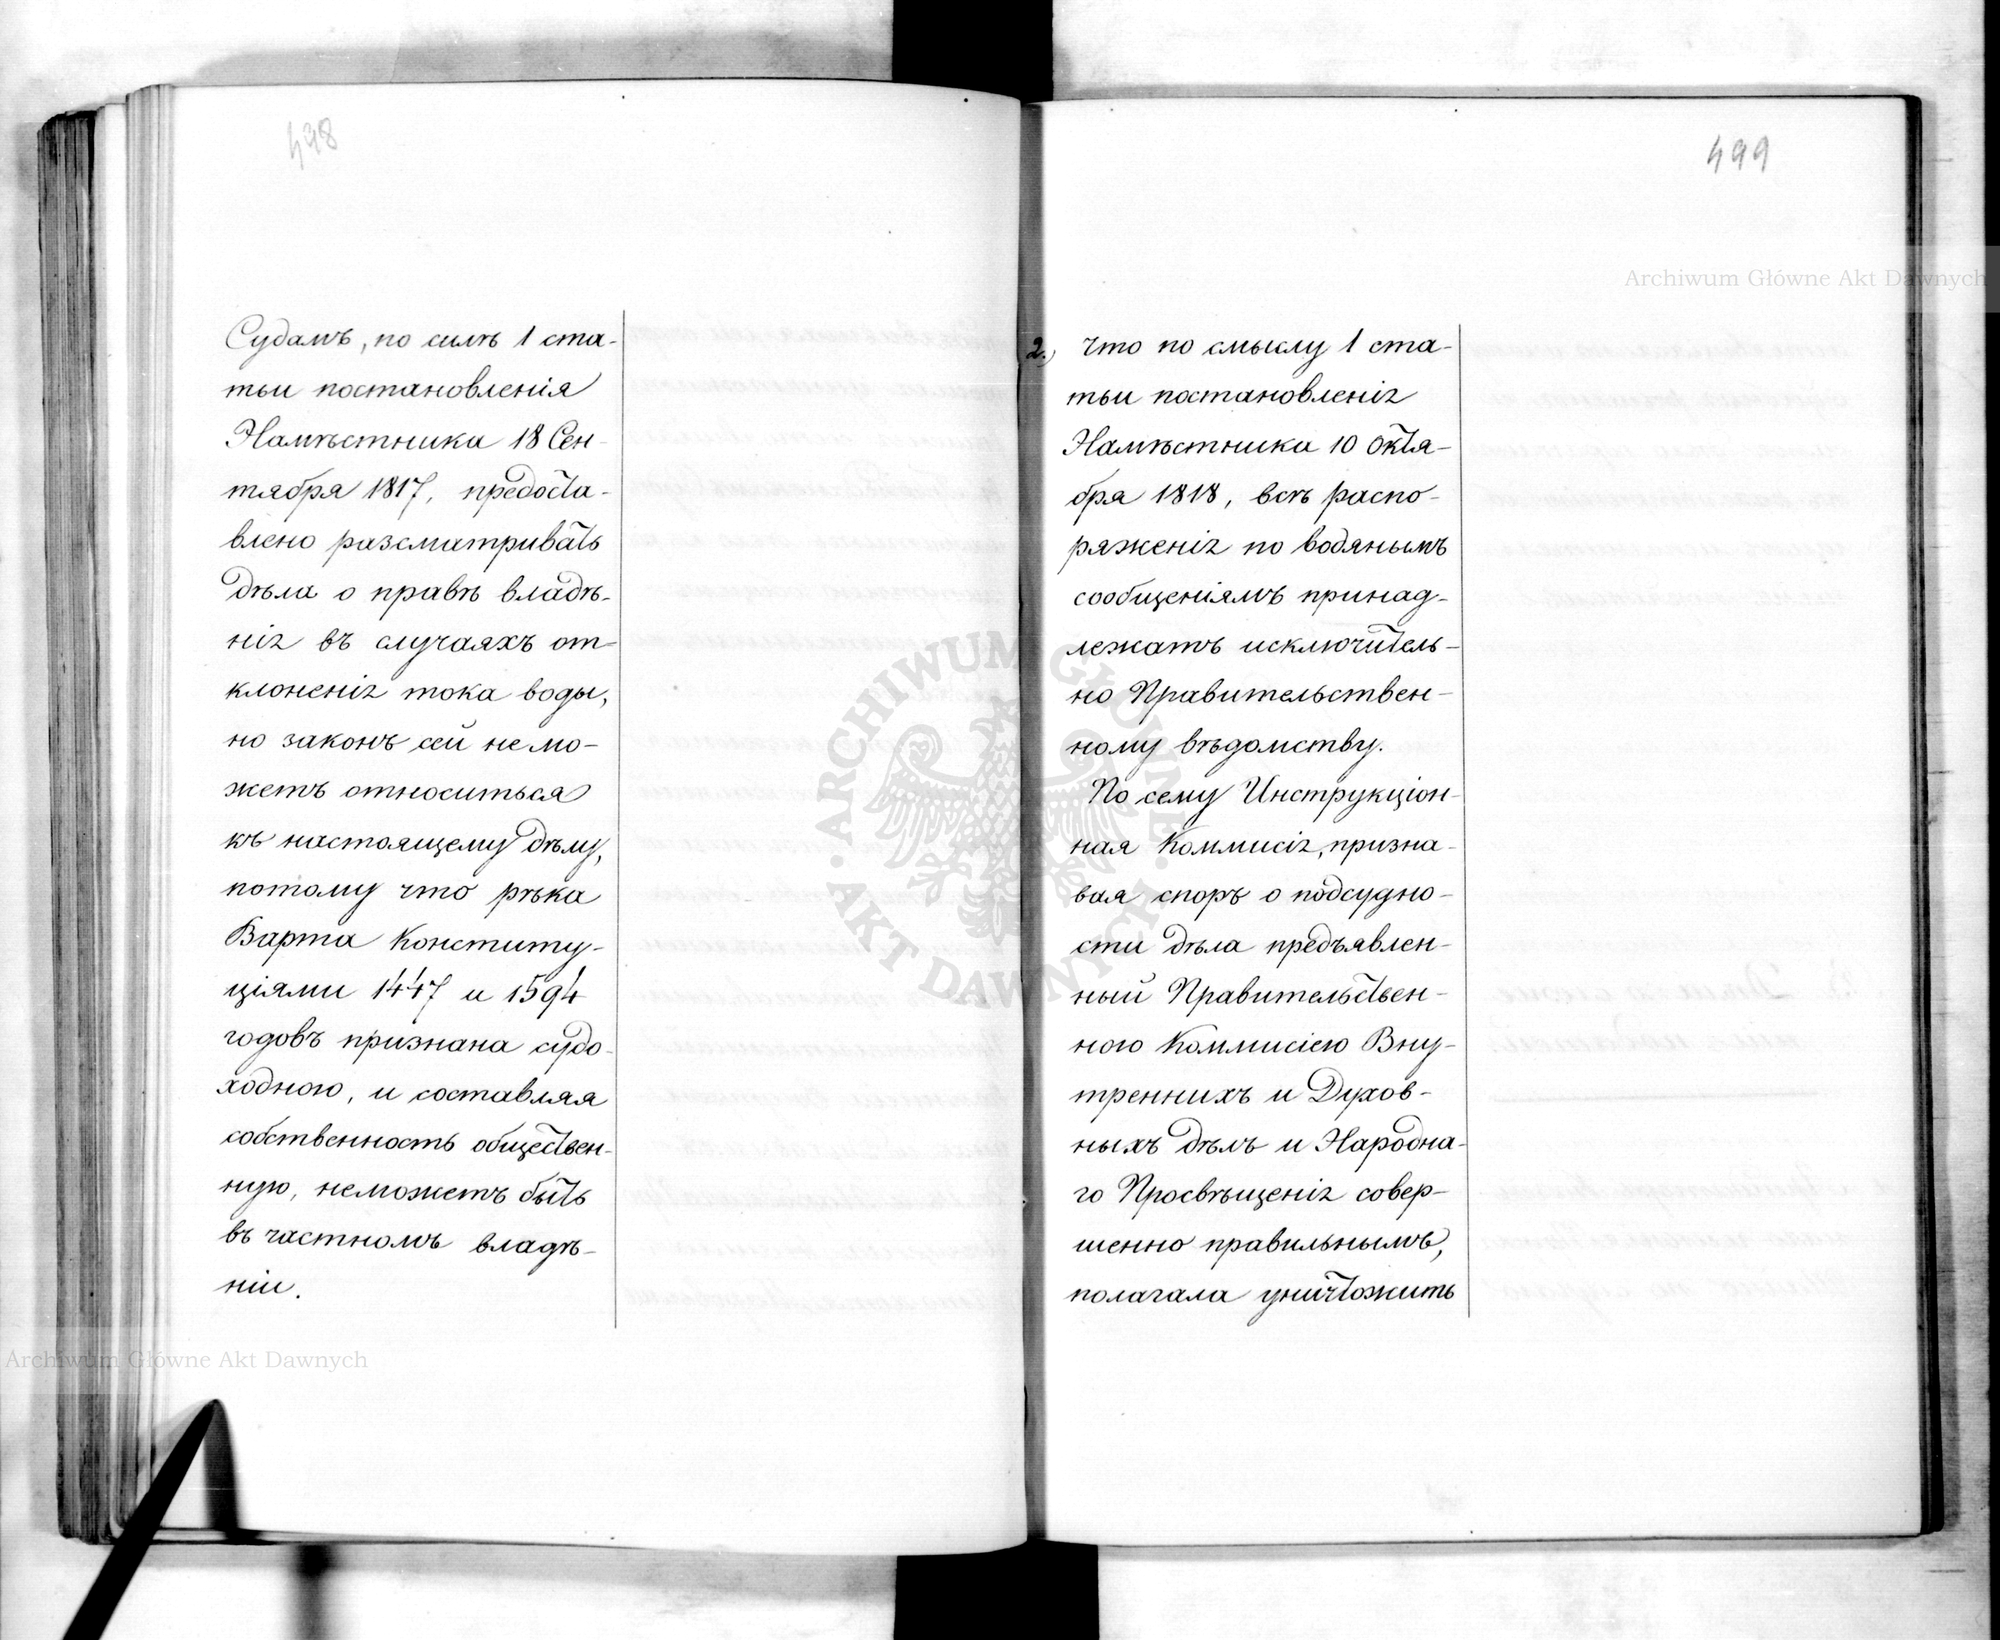 498
Судамъ, по силѣ 1 ста-
тьи постановленія
Намѣстника 18 Сен-
тября 1817, предоста-
влено разсматривать
дѣла о правѣ владѣ-
нія въ случаяхъ от-
клоненія тока воды,
но законъ сей не мо-
жетъ относиться
къ настоящему дѣлу,
потому что рѣка
Варта Конститу-
ціями 1447 и 1594
годовъ признана судо-
ходною, и составляя
собственность обществен-
ную, неможетъ быть
въ частномъ владѣ-
ніи.
499
2.) что по смыслу 1 ста-
тьи постановленія
Намѣстника 10 Октя-
бря 1818, всѣ распо-
ряженія по водянымъ
сообщеніямъ принад-
лежатъ исключитель-
но Правительствен-
ному вѣдомству.
По сему Инструкціон-
ная Коммисія, призна-
вая споръ о подсудно-
сти дѣла предъявлен-
ный Правительствен-
ною Коммисіею Вну-
треннихъ и Духов-
ныхъ дѣлъ и Народна-
го Просвѣщенія совер-
шенно правильнымъ,
полагала уничтожить
Archiwum Główne Akt Dawnych
Archiwum Główne Akt Dawnych
ARCHIWUM GŁÓWNE AKT DAWNYCH